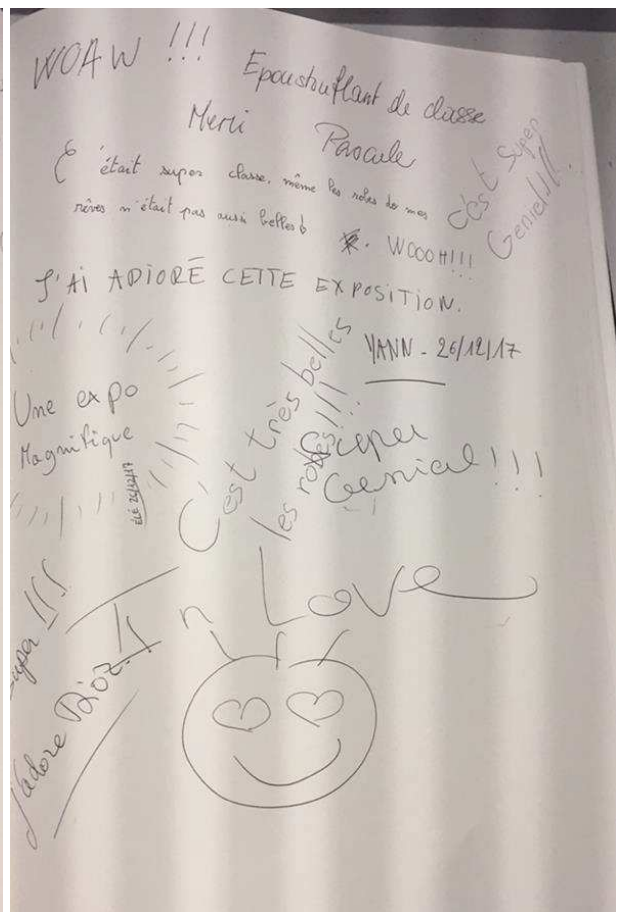 WOAW !!!
Epoustouflant de classe
Merci Pascale
C'était super classe, même les robes de mes
rêves n'était pas aussi belles
WOOOH!!!
C'est Super
Genial!!!
J'AI ADIORÉ CETTE EXPOSITION.
YANN - 26/12/17
Une expo
Magnifique
26/12/17
C'est très belles
les robes!!!
Super
Genial!!!
Love
Super !!!
J'adore !!